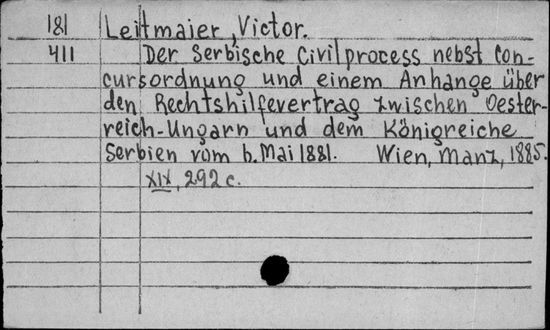 181 Leitmaier, Victor.
411 Der Serbische Civilprocess nebst Con-
cursordnung und einem Anhange über
den Rechtshilfevertrag zwischen Oester-
reich-Ungarn und dem Königreiche
Serbien vom 6. Mai 1881. Wien, Manz, 1885.
XIX, 292 c.